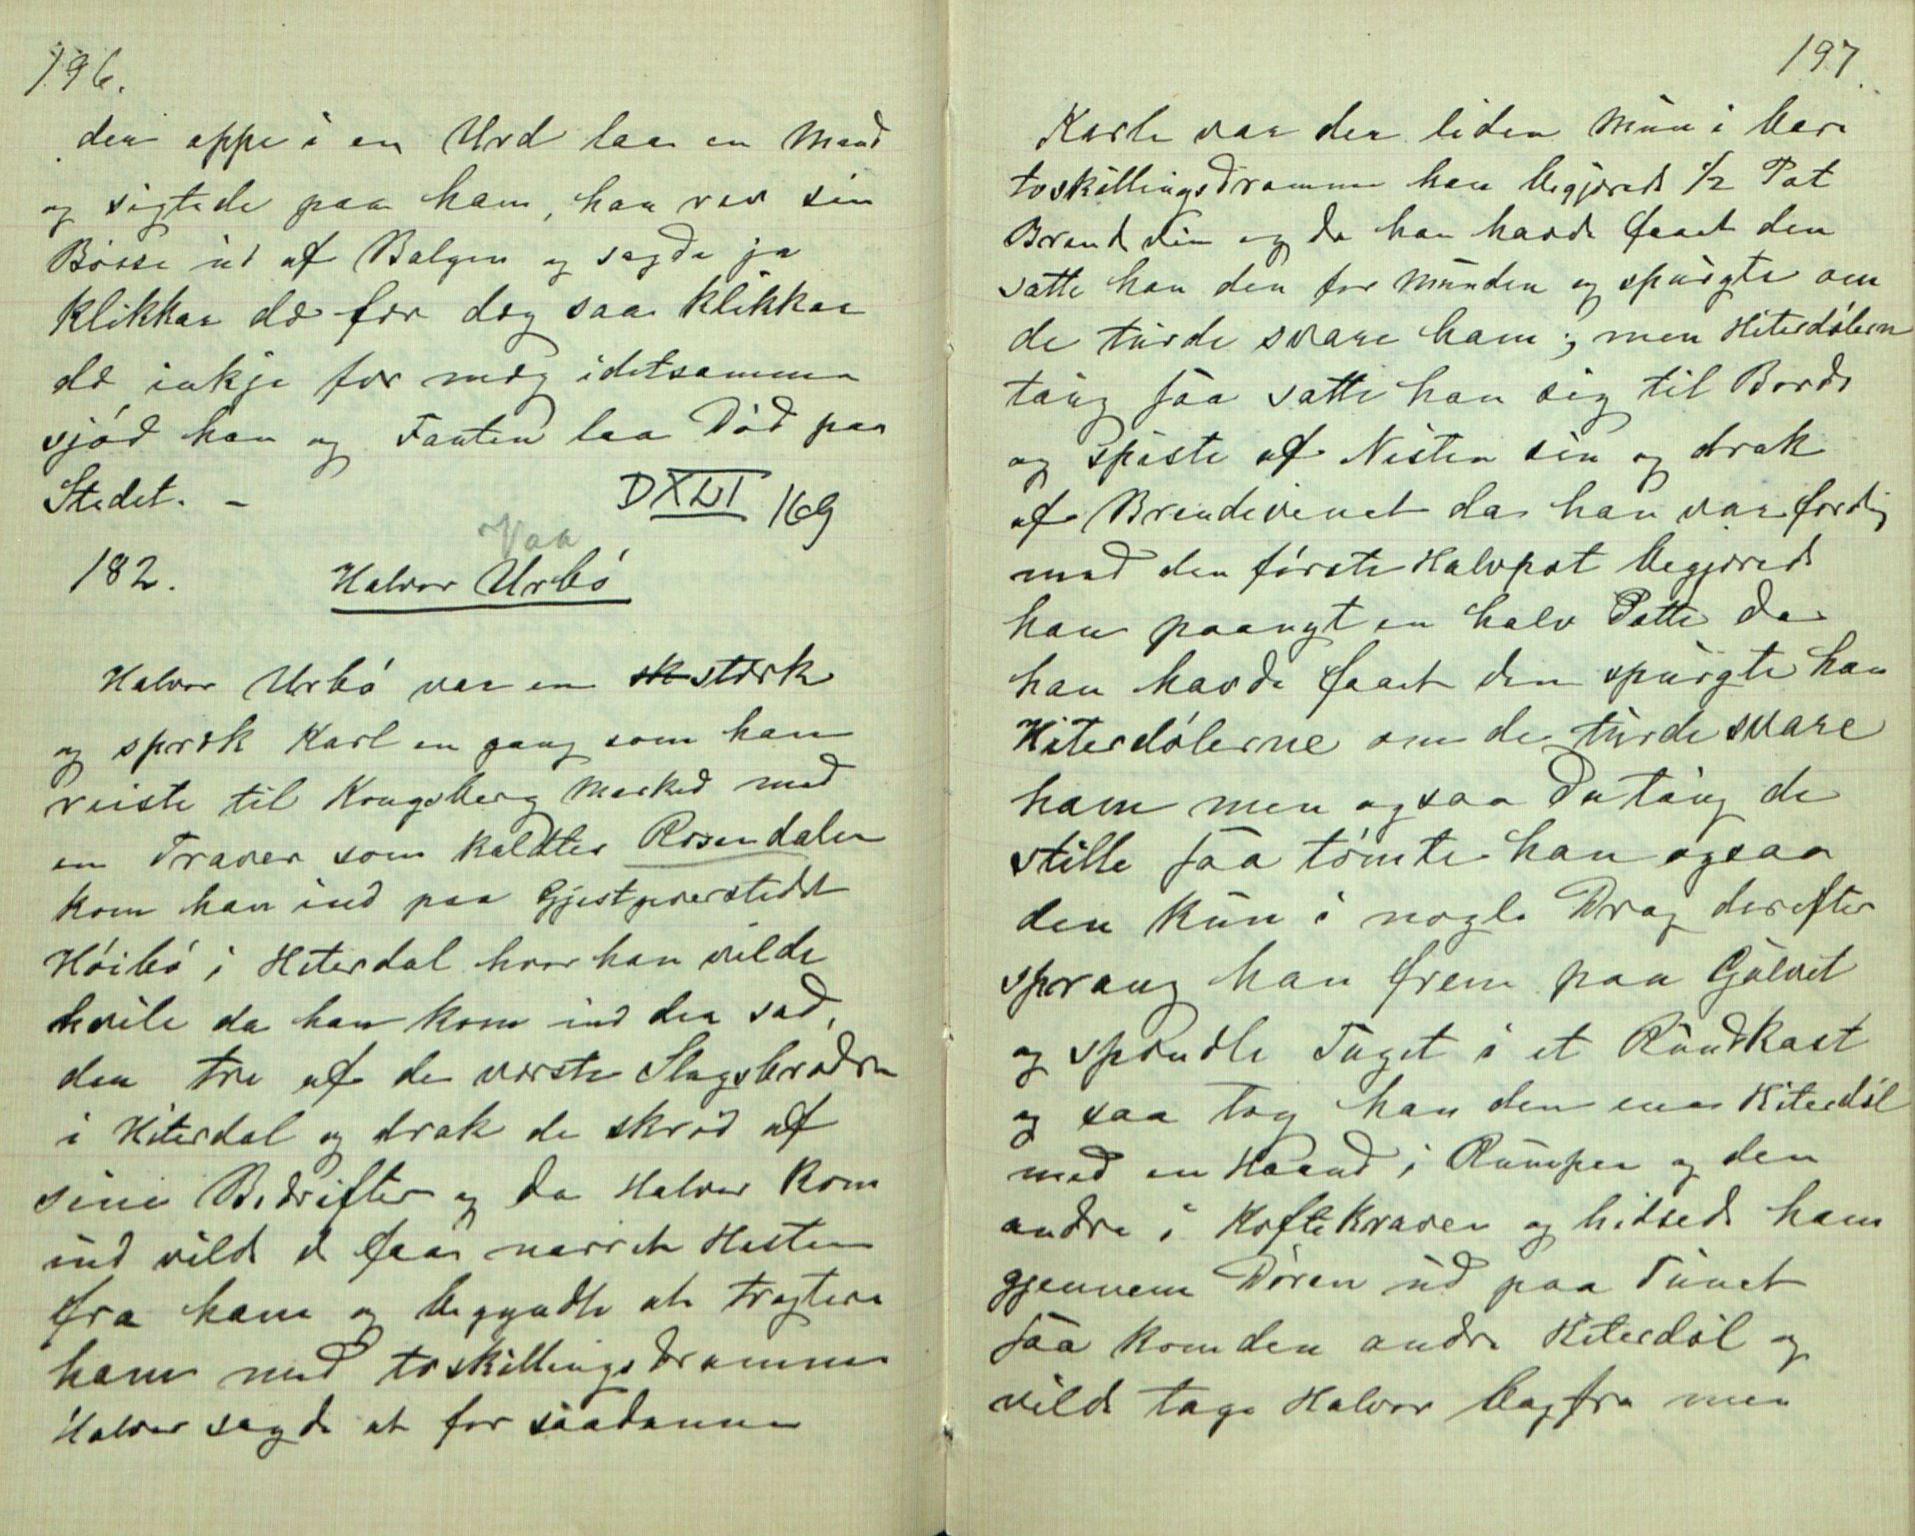 196.
der oppe i en Urd laa en Mand
og sigtede paa ham, han rev sin
Bøsse ud af Balgen og sagde ja
klikkar dæ for deg saa klikkar
dæ inkje for meg idetsamme
sjød han og Fanten laa Død paa
Stedet. –
DXLI 169
Vaa
182. Halvor Urbø
Halvor Urbø var en sk stærk
og spræk Karl en gang som han
reiste til Kongsberg Marked med
en Traver som kaldtes Rosendalen
kom han ind paa Gjestgiverstedet
Høibø i Hiterdal hvor han vilde
hvile da han kom ind der sad,
der tre af de værste Slagsbrødre
i Hiterdal og drak de skrød af
sine Bedrifter og da Halvor kom
ind vilde de faa narret Hesten
fra ham og begyndte at tragtere
ham med toskillingsdrammer
Halvor sagde at for saadanne
197
Karle var der liden Mun i bare
toskillingsdramme han begjærede 1/2 Pot
Brendevin og da han havde faaet den
satte han den for Munden og spurgte om
de turde svare ham; men Hiterdølern
taug saa satte han sig til Bords
og spiste af Nisten sin og drak
af Brendevinet da han var ferdig
med den første Halvpot begjærede
han paanyt en halv Potte da
han havde faaet den spurgte han
Hiterdølerne om de turde svare
ham men ogsaa Da taug de
stille saa tømte han ogsaa
den kun i nogle Drag derefter
sprang han frem paa Gulvet
og spændte Taget i et Rundkast
og saa tog han den ene Hiterdøl
med en Haand i Rumpen og den
andre i Koftekraven og hidsede ham
gjennem Døren ud paa Tunet
saa kom den andre Hiterdøl og
vilde tage Halvor bagfra men